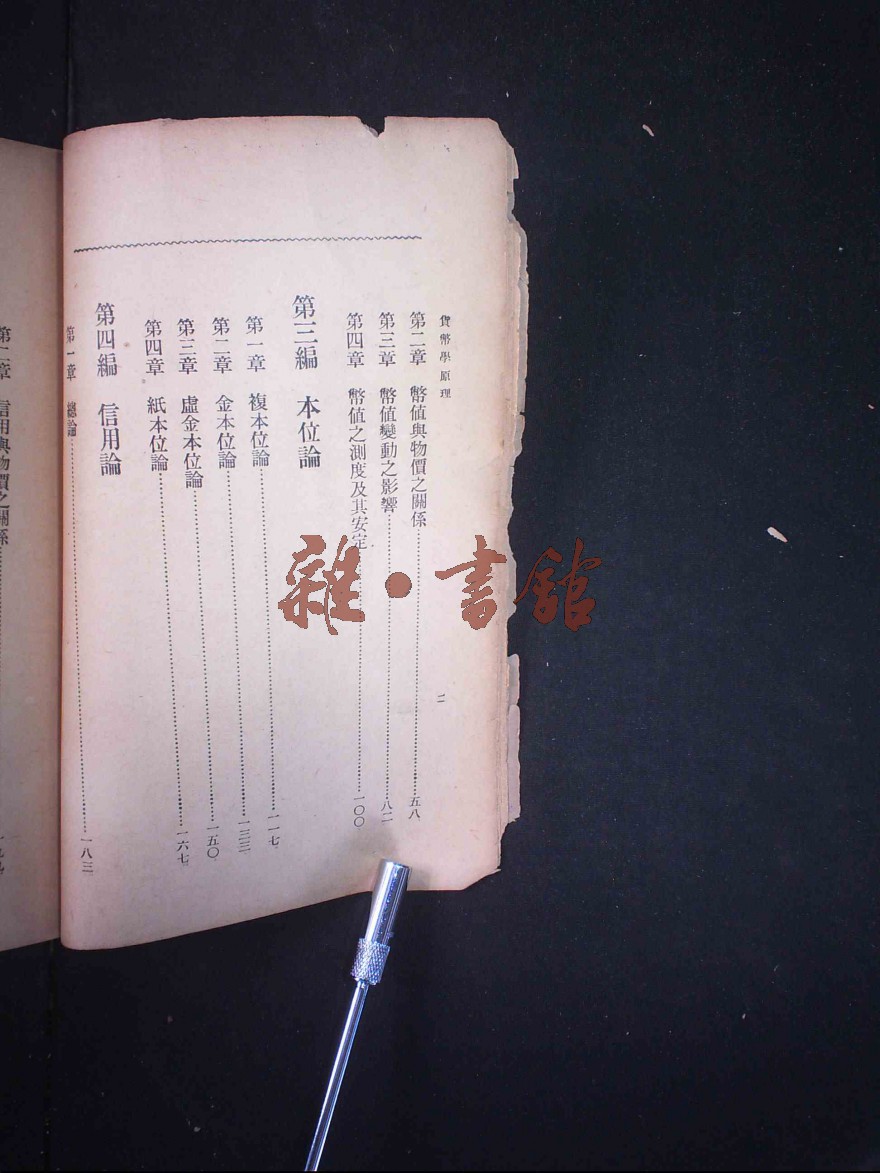 貨幣學原理 二
第二章 幣值與物價之關係……五八
第三章 幣值變動之影響……八二
第四章 幣值之測度及其安定……一〇〇
第三編 本位論
第一章 複本位論……一一七
第二章 金本位論……一三三
第三章 虛金本位論……一五〇
第四章 紙本位論……一六七
第四編 信用論
第一章 總論……一八三
第二章 信用與物價之關係
雜·書館